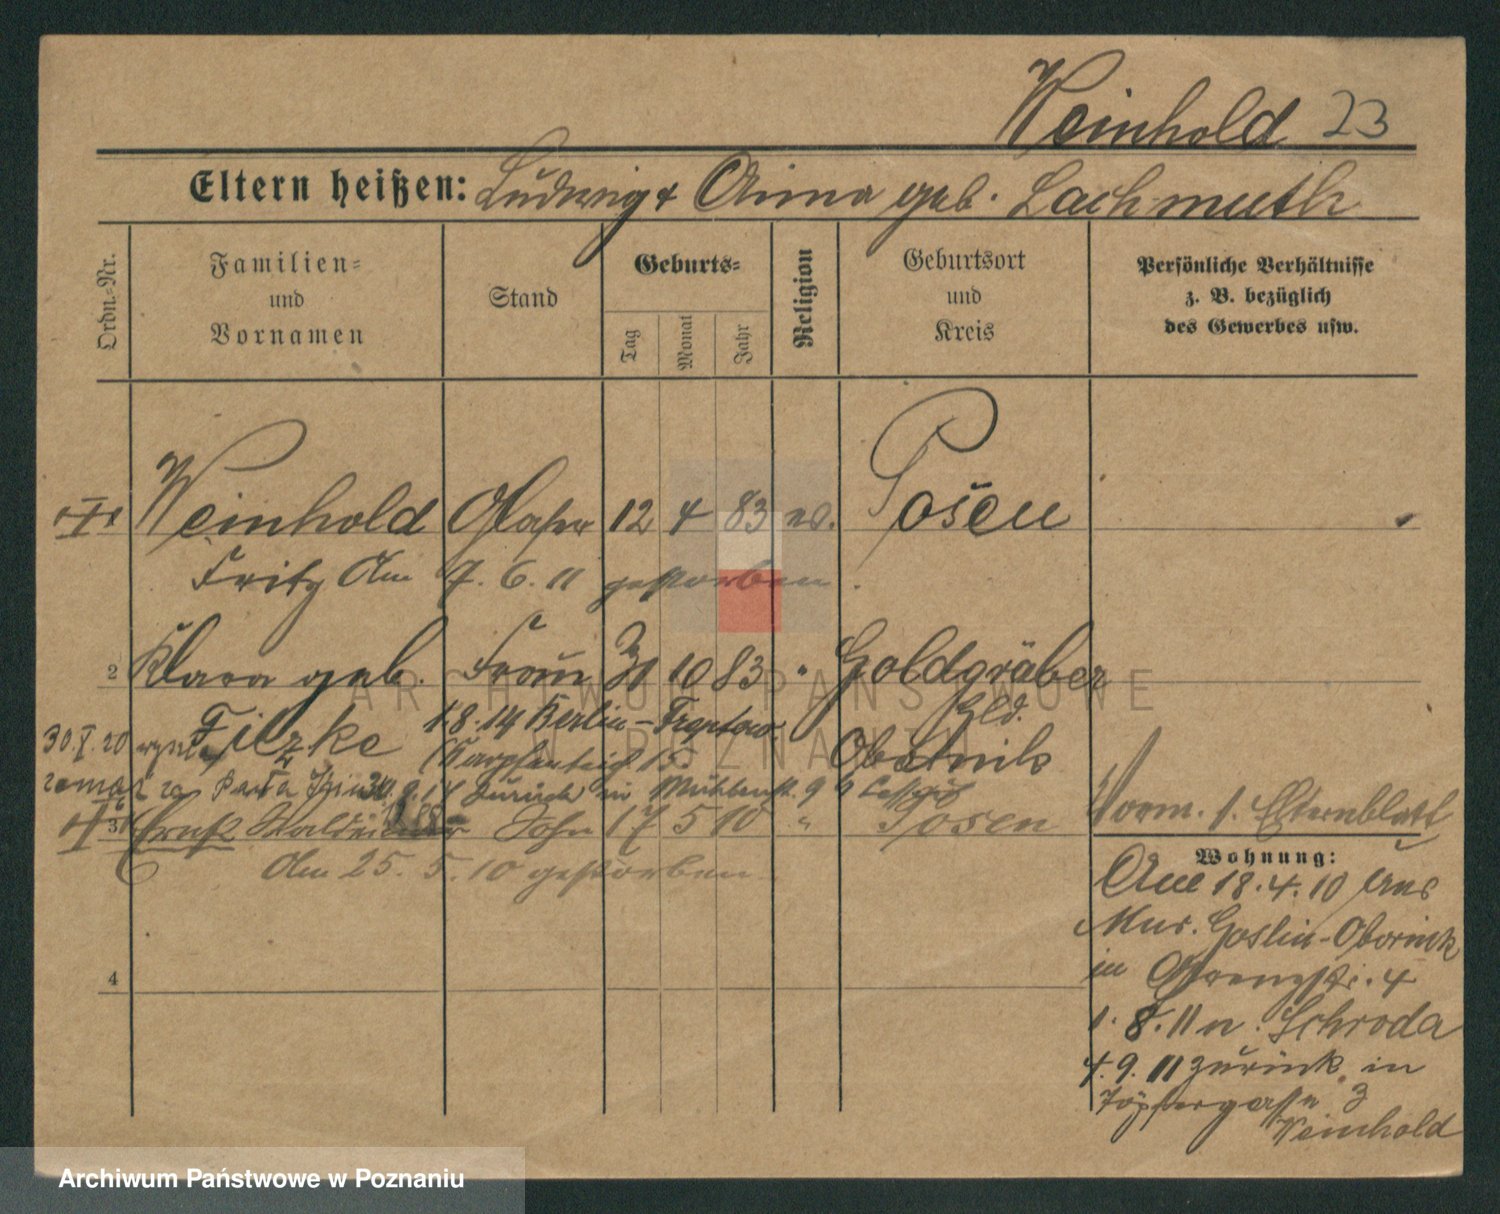 Weinhold 23
Eltern heißen: Ludwig + Anna geb. Lachmuth
Ordn.-Nr.
Familien-
und
Vornamen
Stand
Geburts-
Tag
Monat
Jahr
Religion
Geburtsort
und
Kreis
Persönliche Verhältnisse
z. B. bezüglich
des Gewerbes usw.
Weinhold Glaser 12 4 83 ev. Posen
Fritz Am 7. 6. 11 gestorben.
2 Klara geb. Frau 10 83 " Goldgräber
Filzke 1.8.14 Berlin-Treptow
Obornik
30.X.20
zurück in Mühlenstr. 9
3 Sohn 17 5 10 " Posen
Am 25. 5. 10 gestorben
Vorm. 1. Elternblatt
Wohnung:
Am 18. 4. 10 aus
Mur. Goslin-Obornik
in 4
1. 8. 11 n. Schroda
4. 9. 11 zurück in
Töpfergasse 3
Weinhold
4
ARCHIWUM PAŃSTWOWE
W POZNANIU
Archiwum Państwowe w Poznaniu